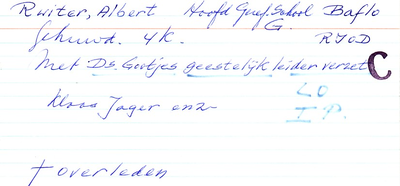 Ruiter, Albert Hoofd Gref. School Baflo
G.
Gehuwd. 4K. RYOD
Met Ds. Gootjes geestelijk leider verzet C
Klaas Jager enz LO
I P.
† overleden